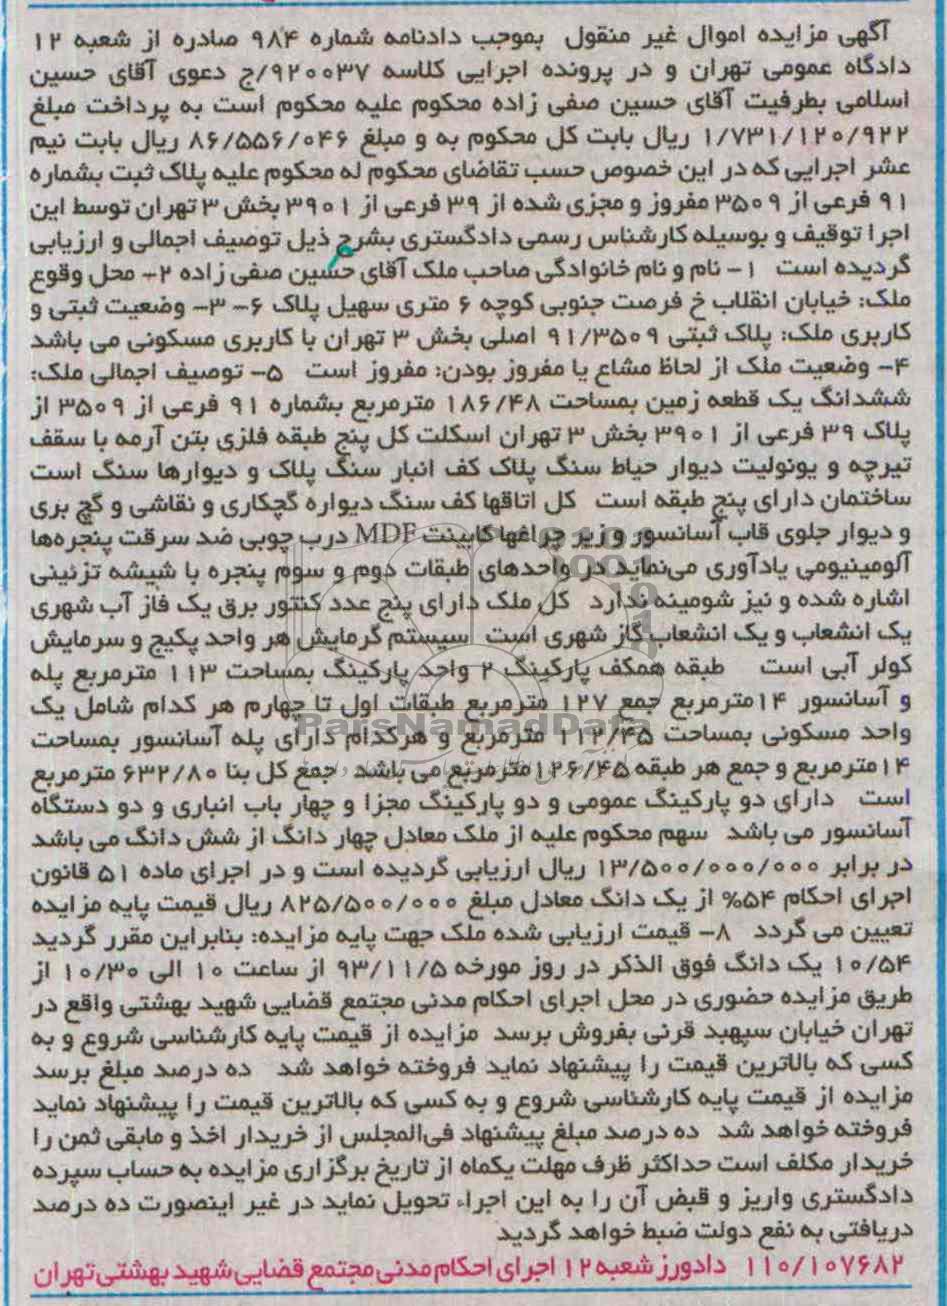 آگهی مزایده اموال غیر منقول بموجب دادنامه شماره ۹۸۴ صادره از شعبه ۱۲
دادگاه عمومی تهران و در پرونده اجرایی کلاسه ۹۲۰۰۳۷/ج دعوی آقای حسین
اسلامی بطرفیت آقای حسین صفی زاده محکوم علیه محکوم است به پرداخت مبلغ
۱/۷۳۱/۱۲۰/۹۲۲ ریال بابت کل محکوم به و مبلغ ۸۶/۵۵۶/۰۴۶ ریال بابت نیم
عشر اجرایی که در این خصوص حسب تقاضای محکوم له محکوم علیه پلاک ثبت بشماره
۹۱ فرعی از ۳۵۰۹ مفروز و مجزی شده از ۳۹ فرعی از ۳۹۰۱ بخش ۳ تهران توسط این
اجرا توقیف و بوسیله کارشناس رسمی دادگستری بشرح ذیل توصیف اجمالی و ارزیابی
گردیده است ۱- نام و نام خانوادگی صاحب ملک آقای حسین صفی زاده ۲- محل وقوع
ملک: خیابان انقلاب خ فرصت جنوبی کوچه ۶ متری سهیل پلاک ۶- ۳- وضعیت ثبتی و
کاربری ملک: پلاک ثبتی ۹۱/۳۵۰۹ اصلی بخش ۳ تهران با کاربری مسکونی می باشد
۴- وضعیت ملک از لحاظ مشاع یا مفروز بودن: مفروز است ۵- توصیف اجمالی ملک:
ششدانگ یک قطعه زمین بمساحت ۱۸۶/۴۸ مترمربع بشماره ۹۱ فرعی از ۳۵۰۹ از
پلاک ۳۹ فرعی از ۳۹۰۱ بخش ۳ تهران اسکلت کل پنج طبقه فلزی بتن آرمه با سقف
تیرچه و یونولیت دیوار حیاط سنگ پلاک کف انبار سنگ پلاک و دیوارها سنگ است
ساختمان دارای پنج طبقه است کل اتاقها کف سنگ دیواره گچکاری و نقاشی و گچ بری
و دیوار جلوی قاب آسانسور و زیر چراغها کابینت MDF درب چوبی ضد سرقت پنجره‌ها
آلومینیومی یادآوری می‌نماید در واحدهای طبقات دوم و سوم پنجره با شیشه تزئینی
اشاره شده و نیز شومینه ندارد کل ملک دارای پنج عدد کنتور برق یک فاز آب شهری
یک انشعاب و یک انشعاب گاز شهری است سیستم گرمایش هر واحد پکیج و سرمایش
کولر آبی است طبقه همکف پارکینگ ۲ واحد پارکینگ بمساحت ۱۱۳ مترمربع پله
و آسانسور ۱۴مترمربع جمع ۱۲۷ مترمربع طبقات اول تا چهارم هر کدام شامل یک
ParsNamadData
واحد مسکونی بمساحت ۱۱۲/۴۵ مترمربع و هرکدام دارای پله آسانسور بمساحت
۱۴مترمربع و جمع هر طبقه ۱۲۶/۴۵مترمربع می باشد جمع کل بنا ۶۳۲/۸۰ مترمربع
است دارای دو پارکینگ عمومی و دو پارکینگ مجزا و چهار باب انباری و دو دستگاه
آسانسور می باشد سهم محکوم علیه از ملک معادل چهار دانگ از شش دانگ می باشد
در برابر ۱۳/۵۰۰/۰۰۰/۰۰۰ ریال ارزیابی گردیده است و در اجرای ماده ۵۱ قانون
اجرای احکام ۵۴% از یک دانگ معادل مبلغ ۸۲۵/۵۰۰/۰۰۰ ریال قیمت پایه مزایده
تعیین می گردد ۸- قیمت ارزیابی شده ملک جهت پایه مزایده: بنابراین مقرر گردید
۱۰/۵۴ یک دانگ فوق الذکر در روز مورخه ۹۳/۱۱/۵ از ساعت ۱۰ الی ۱۰/۳۰ از
طریق مزایده حضوری در محل اجرای احکام مدنی مجتمع قضایی شهید بهشتی واقع در
تهران خیابان سپهبد قرنی بفروش برسد مزایده از قیمت پایه کارشناسی شروع و به
کسی که بالاترین قیمت را پیشنهاد نماید فروخته خواهد شد ده درصد مبلغ برسد
مزایده از قیمت پایه کارشناسی شروع و به کسی که بالاترین قیمت را پیشنهاد نماید
فروخته خواهد شد ده درصد مبلغ پیشنهاد فی‌المجلس از خریدار اخذ و مابقی ثمن را
خریدار مکلف است حداکثر ظرف مهلت یکماه از تاریخ برگزاری مزایده به حساب سپرده
دادگستری واریز و قبض آن را به این اجراء تحویل نماید در غیر اینصورت ده درصد
دریافتی به نفع دولت ضبط خواهد گردید
۱۱۰/۱۰۷۶۸۲ دادورز شعبه ۱۲ اجرای احکام مدنی مجتمع قضایی شهید بهشتی تهران